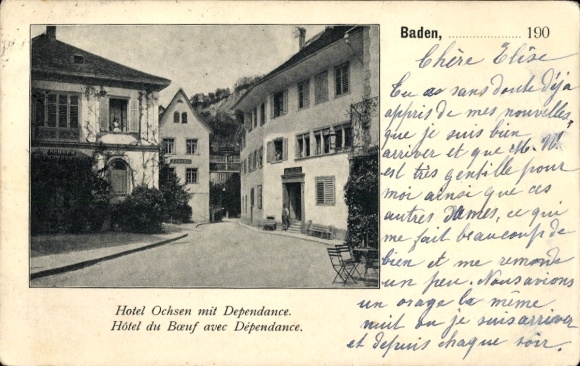 Baden, 190
Chère Elise
Tu as sans doute déja
appris de mes nouvelles,
que je suis bien
arriver et que M. W.
est très gentille pour
moi ainsi que ces
autres Dames, ce qui
me fait beaucoup de
bien et me remonte
un peu. Nous avions
un orage la même
nuit ou je suis arriver
et depuis chaque soir.
Hotel Ochsen mit Dependance.
Hôtel du Bœuf avec Dépendance.